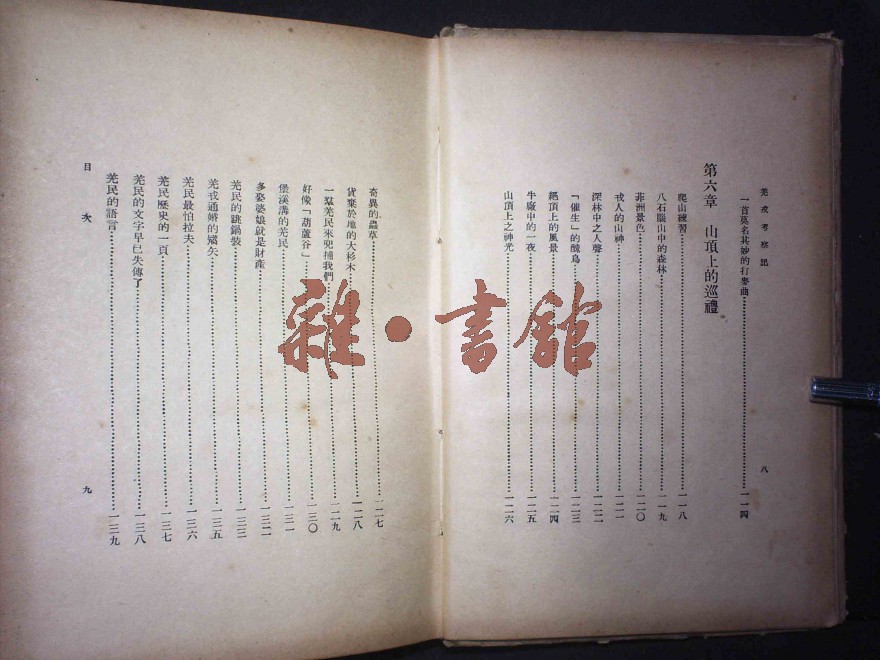 羌戎考察記
一首莫名其妙的打麥曲…………一一四
第六章　山頂上的巡禮
爬山練習…………一一八
八石腦山中的森林…………一一九
菲洲景色…………一二〇
戎人的山神…………一二一
深林中之人聲…………一二二
「催生」的醜鳥…………一二三
絕頂上的風景…………一二四
牛廠中的一夜…………一二五
山頂上之神光…………一二六
八
奇異的蟲草…………一二七
貨棄於地的大杉木…………一二八
一羣羌民來兜捕我們…………一二九
好像「葫蘆谷」…………一三〇
堡溪溝的羌民…………一三一
多娶婆娘就是財產…………一三二
羌民的跳鍋裝…………一三三
羌戎通婚的嚆矢…………一三五
羌民最怕拉夫…………一三六
羌民歷史的一頁…………一三七
羌民的文字早已失傳了…………一三八
羌民的語言…………一三九
目次
九
雜·書館